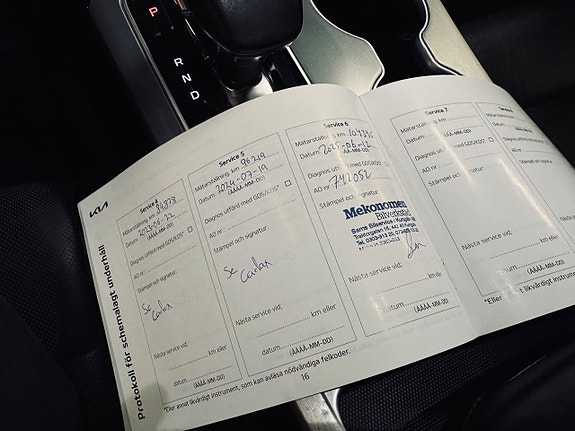 P
R
N
D
KIA
Protokoll för schemalagt underhåll
Service 4
Mätarställning, km
Datum 2023-06-22
(ÅÅÅÅ-MM-DD)
Diagnos utförd med GDS/KDS*
AO nr
Stämpel och signatur:
Se
Carlax
Nästa service vid:
km eller
datum
(ÅÅÅÅ-MM-DD)
Service 5
Mätarställning, km 96219
Datum 2024-07-19
(ÅÅÅÅ-MM-DD)
Diagnos utförd med GDS/KDS*
AO nr
Stämpel och signatur:
Se
Carlax
Nästa service vid:
km eller
datum
(ÅÅÅÅ-MM-DD)
Service 6
Mätarställning, km
Datum 2025-06-12
(ÅÅÅÅ-MM-DD)
Diagnos utförd med GDS/KDS*
AO nr 742052
Stämpel och signatur:
Mekonomen
Bilverkstad
Sams Bilservice i Kungälv
Nästa service vid:
km eller
datum
(ÅÅÅÅ-MM-DD)
Service 7
Mätarställning, km
Datum
(ÅÅÅÅ-MM-DD)
Diagnos utförd med GDS/KDS*
AO nr
Stämpel och signatur:
Nästa service vid:
km eller
datum
(ÅÅÅÅ-MM-DD)
*Eller annat likvärdigt instrument, som kan avläsa nödvändiga felkoder.
16